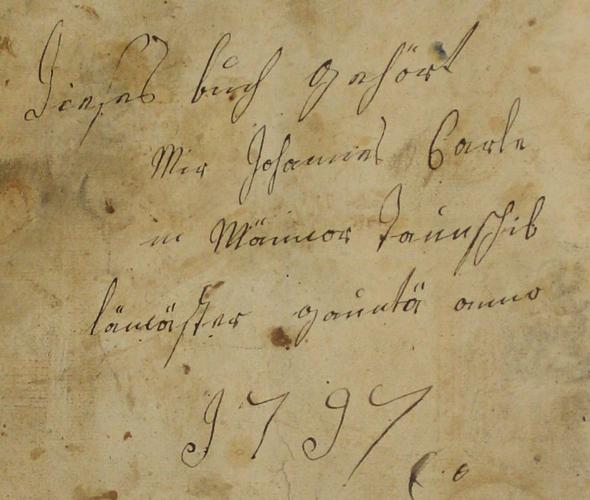 Dieses buch gehört
Mir Johannes Carle
in Männor Taunschib
läncäster gauntä anno
1797